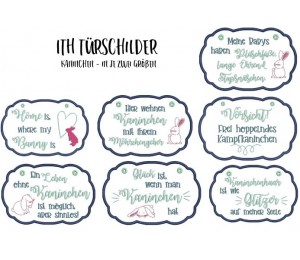 ITH TÜRSCHILDER
Meine Babys
haben Wuschelfüße,
lange Ohren &
Stupsnäschen
Home is
where my
Bunny is
Hier wohnen
Kaninchen
mit ihrem
Möhrchengeber
Vorsicht!
Frei hoppelndes
Kampfkaninchen
Ein Leben
ohne
Kaninchen
ist möglich,
aber sinnlos!
Glück ist,
wenn man
Kaninchen
hat
Kaninchenhaar
ist wie
Glitzer
auf meiner Seele